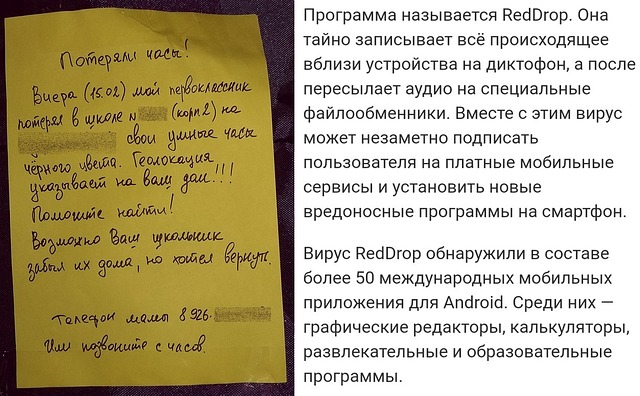 Потеряли часы!
Вчера (15.02) мой первоклассник
потерял в школе № (корп 2) на
свои умные часы
чёрного цвета. Геолокация
указывает на ваш дом!!!
Помогите найти!
Возможно Ваш школьник
забыл их дома, но хотел вернуть.
Телефон мамы 8 926.
Или позвоните с часов.
Программа называется RedDrop. Она
тайно записывает всё происходящее
вблизи устройства на диктофон, а после
пересылает аудио на специальные
файлообменники. Вместе с этим вирус
может незаметно подписать
пользователя на платные мобильные
сервисы и установить новые
вредоносные программы на смартфон.
Вирус RedDrop обнаружили в составе
более 50 международных мобильных
приложения для Android. Среди них —
графические редакторы, калькуляторы,
развлекательные и образовательные
программы.